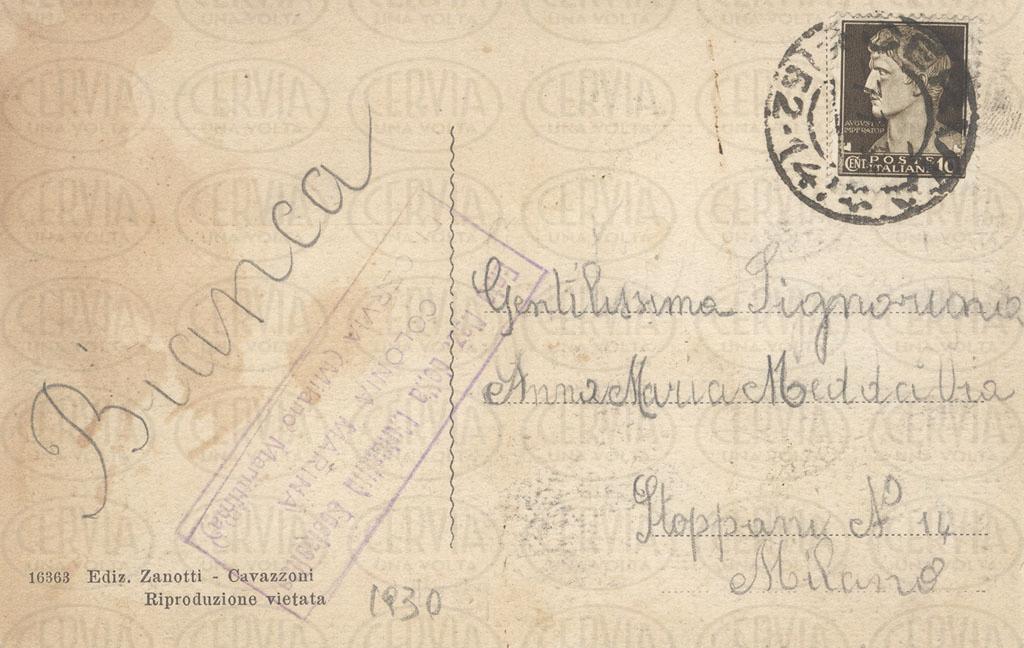 Bianca
AUGUSTUS
IMPERATOR
CENT. POSTE 10
ITALIANE
52.14
COLONIA MARINA
CERVIA (Milano Marittima)
Gentilissima Signorina
Anna Maria Medda Via
Stoppani N 14
Milano
16363 Ediz. Zanotti - Cavazzoni
Riproduzione vietata
1930
CERVIA
UNA VOLTA